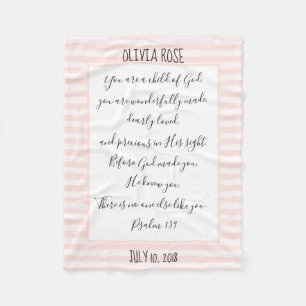 OLIVIA ROSE
You are a child of God,
you are wonderfully made,
dearly loved,
and precious in His sight.
Before God made you,
He knew you.
There is no one else like you.
Psalm 139
JULY 10, 2018